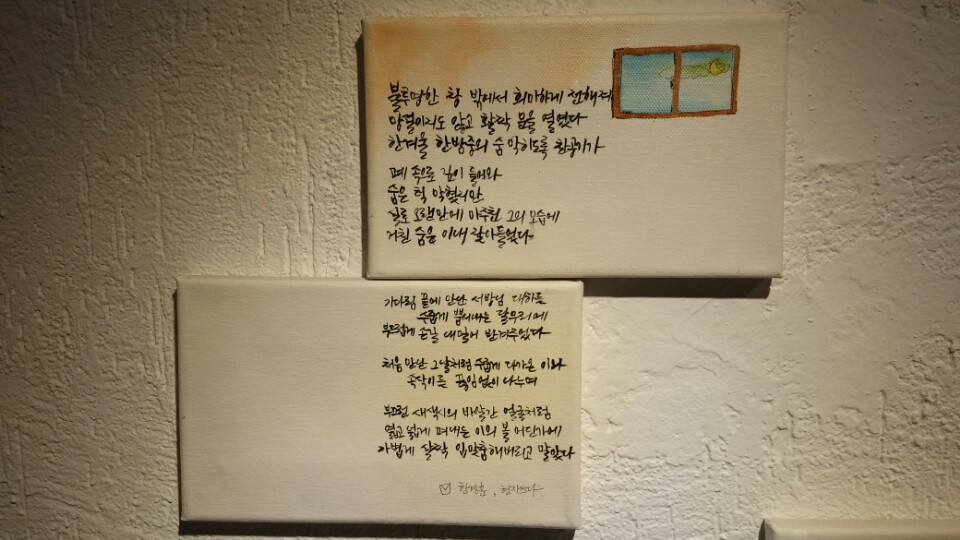 불투명한 창 밖에서 희미하게 전해져
망설이지도 않고 활짝 문을 열었다
한겨울 한밤중의 숨 막히도록 찬공기가
폐 속으로 깊이 들어와
숨은 턱 막혔지만
길로 오랜만에 마주친 그의 모습에
거친 숨은 이내 잦아들었다
기다림 끝에 만난 서방님 대하듯
수줍게 뿜어내는 달무리에
부드럽게 손길 내밀어 반겨주었다
처음 만난 그날처럼 수줍게 다가온 이와
속닥이듯 끊임없이 나누며
부끄런 새색시의 바알간 얼굴처럼
엷고 넓게 펴내는 이의 볼 어딘가에
가볍게 살짝 입맞춤해버리고 말았다